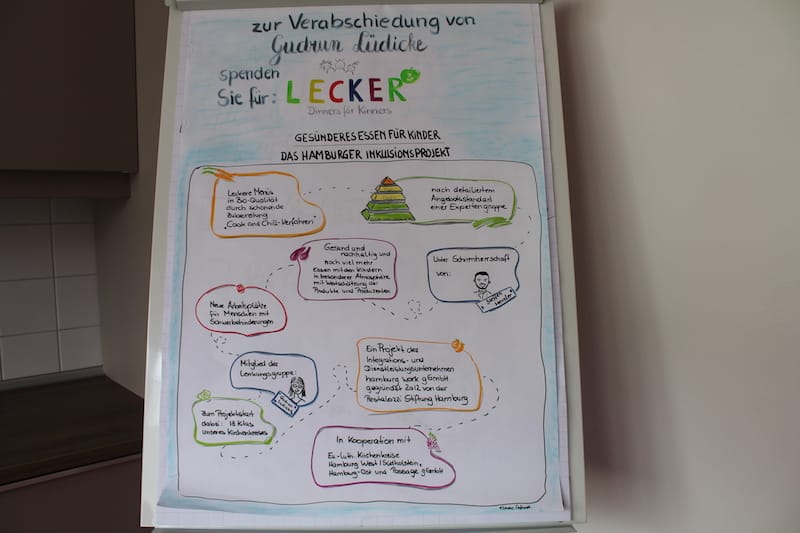 zur Verabschiedung von
Gudrun Lüdicke
spenden
Sie für: LECKER³
Dinners för Kinners
GESÜNDERES ESSEN FÜR KINDER
DAS HAMBURGER INKLUSIONSPROJEKT
Leckere Menüs
in Bio-Qualität
durch schonende
Zubereitung
"Cook and Chill-Verfahren"
nach detailliertem
Angebotsstandard
einer Expertengruppe
Gesund und
nachhaltig und
noch viel mehr
Essen mit den Kindern
in besonderer Atmosphäre
mit Wertschätzung der
Produkte und Produzenten
Unter Schirmherrschaft
von:
Steffen
Henssler
Neue Arbeitsplätze
für Menschen mit
Schwerbehinderungen
Mitglied der
Lenkungsgruppe:
Gudrun
Lüdicke
Ein Projekt des
Integrations- und
Dienstleistungsunternehmen
hamburg work gGmbH
gegründet 2012 von der
Pestalozzi Stiftung Hamburg
Zum Projektstart
dabei: 18 Kitas
unseres Kirchenkreises
In Kooperation mit
Ev.-luth. Kirchenkreise
Hamburg West/Südholstein,
Hamburg-Ost und Passage gGmbH